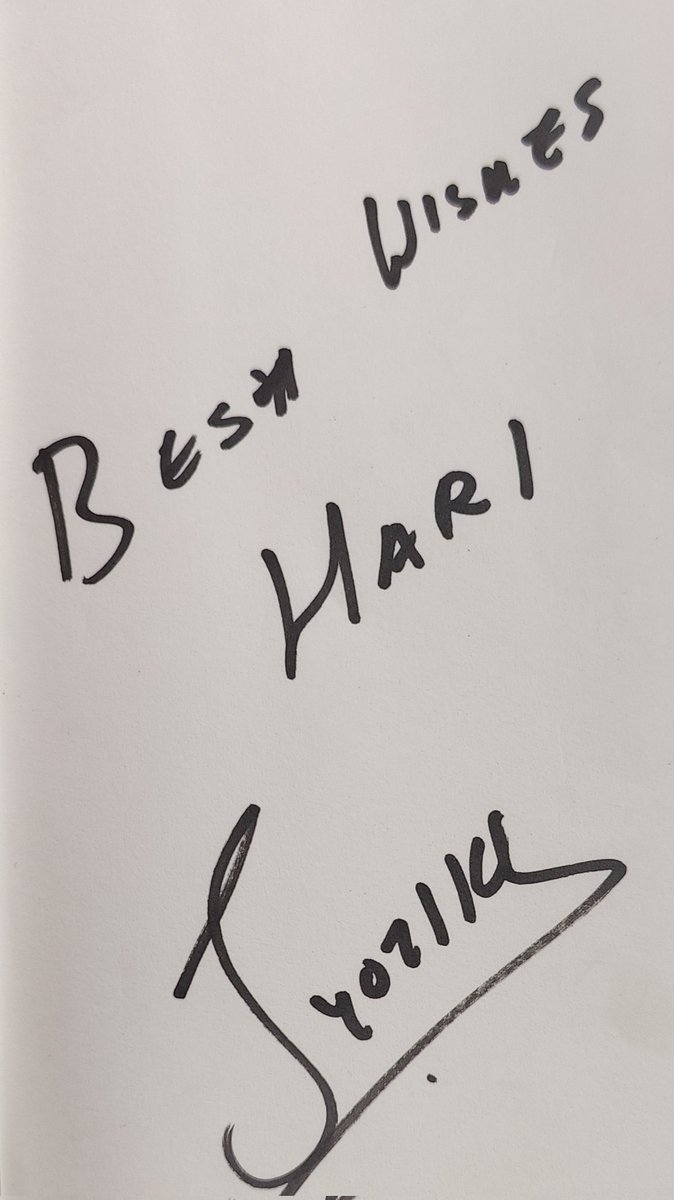 BEST WISHES
HARI
Jyotika